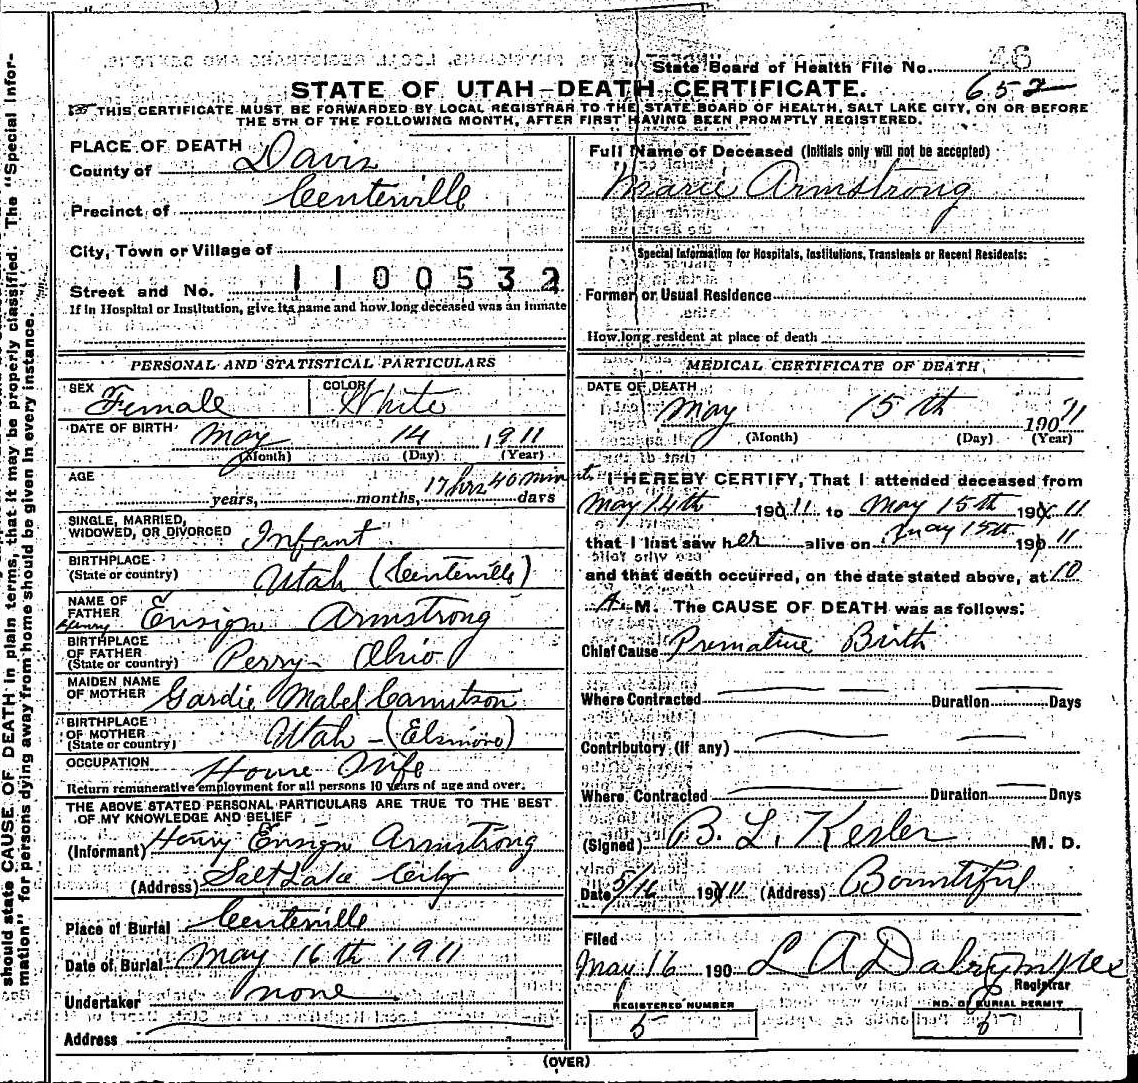 should state CAUSE OF DEATH in plain terms, that it may be properly classified. The "Special Infor-
mation" for persons dying away from home should be given in every instance.
State Board of Health File No. 46
652
STATE OF UTAH—DEATH CERTIFICATE.
THIS CERTIFICATE MUST BE FORWARDED BY LOCAL REGISTRAR TO THE STATE BOARD OF HEALTH, SALT LAKE CITY, ON OR BEFORE
THE 5TH OF THE FOLLOWING MONTH, AFTER FIRST HAVING BEEN PROMPTLY REGISTERED.
PLACE OF DEATH
County of Davis
Precinct of Centerville
City, Town or Village of
1100532
Street and No.
If in Hospital or Institution, give its name and how long deceased was an inmate
Full Name of Deceased (Initials only will not be accepted)
Marie Armstrong
Special Information for Hospitals, Institutions, Transients or Recent Residents:
Former or Usual Residence
How long resident at place of death
PERSONAL AND STATISTICAL PARTICULARS
SEX Female COLOR White
DATE OF BIRTH May 14 1911
(Month) (Day) (Year)
AGE 17 hrs 40 minute
years, months, days
SINGLE, MARRIED,
WIDOWED, OR DIVORCED Infant
BIRTHPLACE
(State or country) Utah (Centerville)
NAME OF
FATHER Henry Ensign Armstrong
BIRTHPLACE
OF FATHER
(State or country) Perry - Ohio
MAIDEN NAME
OF MOTHER Mabel
BIRTHPLACE
OF MOTHER
(State or country) Utah - (Elsinore)
OCCUPATION House Wife
Return remunerative employment for all persons 10 years of age and over.
THE ABOVE STATED PERSONAL PARTICULARS ARE TRUE TO THE BEST
OF MY KNOWLEDGE AND BELIEF
(Informant) Henry Ensign Armstrong
(Address) Salt Lake City
Place of Burial Centerville
Date of Burial May 16th 1911
Undertaker none
Address
MEDICAL CERTIFICATE OF DEATH
DATE OF DEATH
May 15th 190'11
(Month) (Day) (Year)
I HEREBY CERTIFY, That I attended deceased from
May 14th 190 11 to May 15th 190 11
that I last saw her alive on May 15th 190 11
and that death occurred, on the date stated above, at 10
A. M. The CAUSE OF DEATH was as follows:
Chief Cause Premature Birth
Where Contracted Duration Days
Contributory (if any)
Where Contracted Duration Days
(Signed) B. L. Kesler M. D.
Date 5/16 190 11 (Address) Bountiful
Filed
May 16 190 L A Dalrymple
Registrar
REGISTERED NUMBER
5
NO. OF BURIAL PERMIT
5
(OVER)